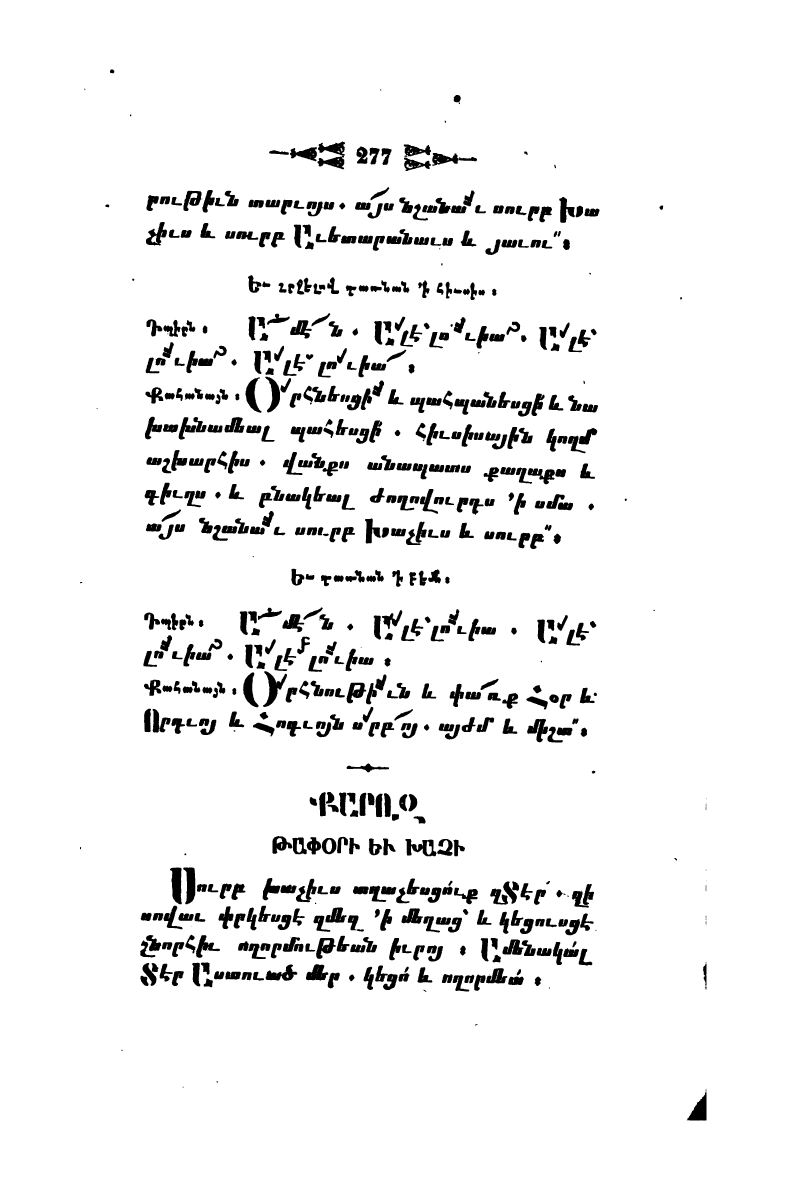 277
րութիւն տարւոյս . այս նշանաւ սուրբ խա
չիւս և սուրբ Աւետարանաւս և յաւուրս :
Եւ շրջելով դառնան ի հիւսիս :
Դպիրն : Ամէն . Ալէլուիա . Ալէ
լուիա . Ալէլուիա :
Քահանայն : Օրհնեսցի և պահպանեսցի և նա
խախնամեալ պահեսցի . հիւսիսային կողմ
աշխարհիս . վանքս անապատս քաղաքս և
գիւղս . և բնակեալ ժողովուրդս ՚ի սմա .
այս նշանաւ սուրբ խաչիւս և սուրբ :
Եւ դառնան ի բեմ :
Դպիրն : Ամէն . Ալէլուիա . Ալէ
լուիա . Ալէլուիա :
Քահանայն : Օրհնութիւն և փառք Հօր և
Որդւոյ և Հոգւոյն սրբոյ . այժմ և միշտ :
ՔԱՐՈԶ
ԹԱՓՕՐԻ ԵՒ ԽԱՉԻ
Սուրբ խաչիւս աղաչեսցուք զՏէր . զի
սովաւ փրկեսցէ զմեզ ՚ի մեղաց՝ և կեցուսցէ
շնորհիւ ողորմութեան իւրոյ : Ամենակալ
Տէր Աստուած մեր . կեցո՛ և ողորմեա՛ :